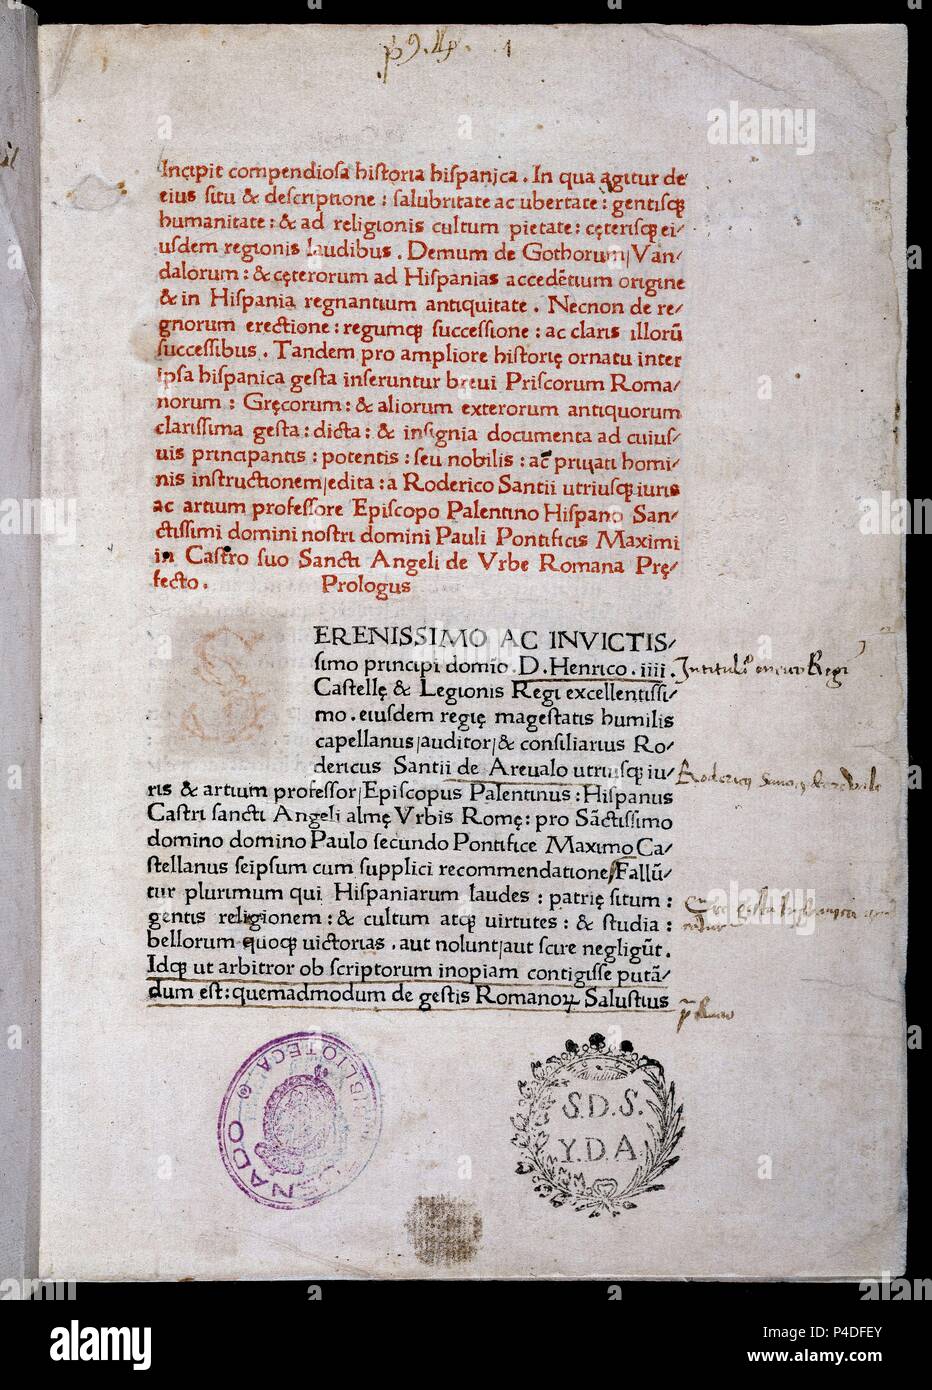 Incipit compendiosa historia hispanica. In qua agitur de
eius situ & descriptione: salubritate ac ubertate: gentisqꝫ
humanitate: & ad religionis cultum pietate: cęterisqꝫ ei/
usdem regionis laudibus. Demum de Gothorum/ Van/
dalorum: & cęterorum ad Hispanias accedētium origine
& in Hispania regnantium antiquitate. Necnon de re/
gnorum erectione: regumqꝫ successione: ac claris illorū
successibus. Tandem pro ampliore historię ornatu inter
ipsa hispanica gesta inseruntur breui Priscorum Roma/
norum: Gręcorum: & aliorum exterorum antiquorum
clarissima gesta: dicta: & insignia documenta ad cuius/
uis principantis: potentis: seu nobilis: ac priuati homi/
nis instructionem/edita: a Roderico Santii utriusqꝫ iuris
ac artium professore Episcopo Palentino Hispano San/
ctissimi domini nostri domini Pauli Pontificis Maximi
in Castro suo Sancti Angeli de Vrbe Romana Prę/
fecto. Prologus
S
ERENISSIMO AC INVICTIS/
simo principi domio. D. Henrico. iiii.
Castellę & Legionis Regi excellentissi/
mo. eiusdem regię magestatis humilis
capellanus/auditor/& consiliarius Ro/
dericus Santii de Areualo utriusqꝫ iu/
ris & artium professor/Episcopus Palentinus: Hispanus
Castri sancti Angeli almę Vrbis Romę: pro Sāctissimo
domino domino Paulo secundo Pontifice Maximo Ca/
stellanus seipsum cum supplici recommendatione/Fallū/
tur plurimum qui Hispaniarum laudes: patrię situm:
gentis religionem: & cultum atqꝫ virtutes: & studia:
bellorum quoqꝫ uictorias. aut nolunt/aut scire negligūt.
Idqꝫ ut arbitror ob scriptorum inopiam contigisse putā/
dum est: quemadmodum de gestis Romanoꝝ Salustius
BIBLIOTECA
SENADO
S.D.S.
Y.D.A
alamy stock photo
P4DFEY
www.alamy.com